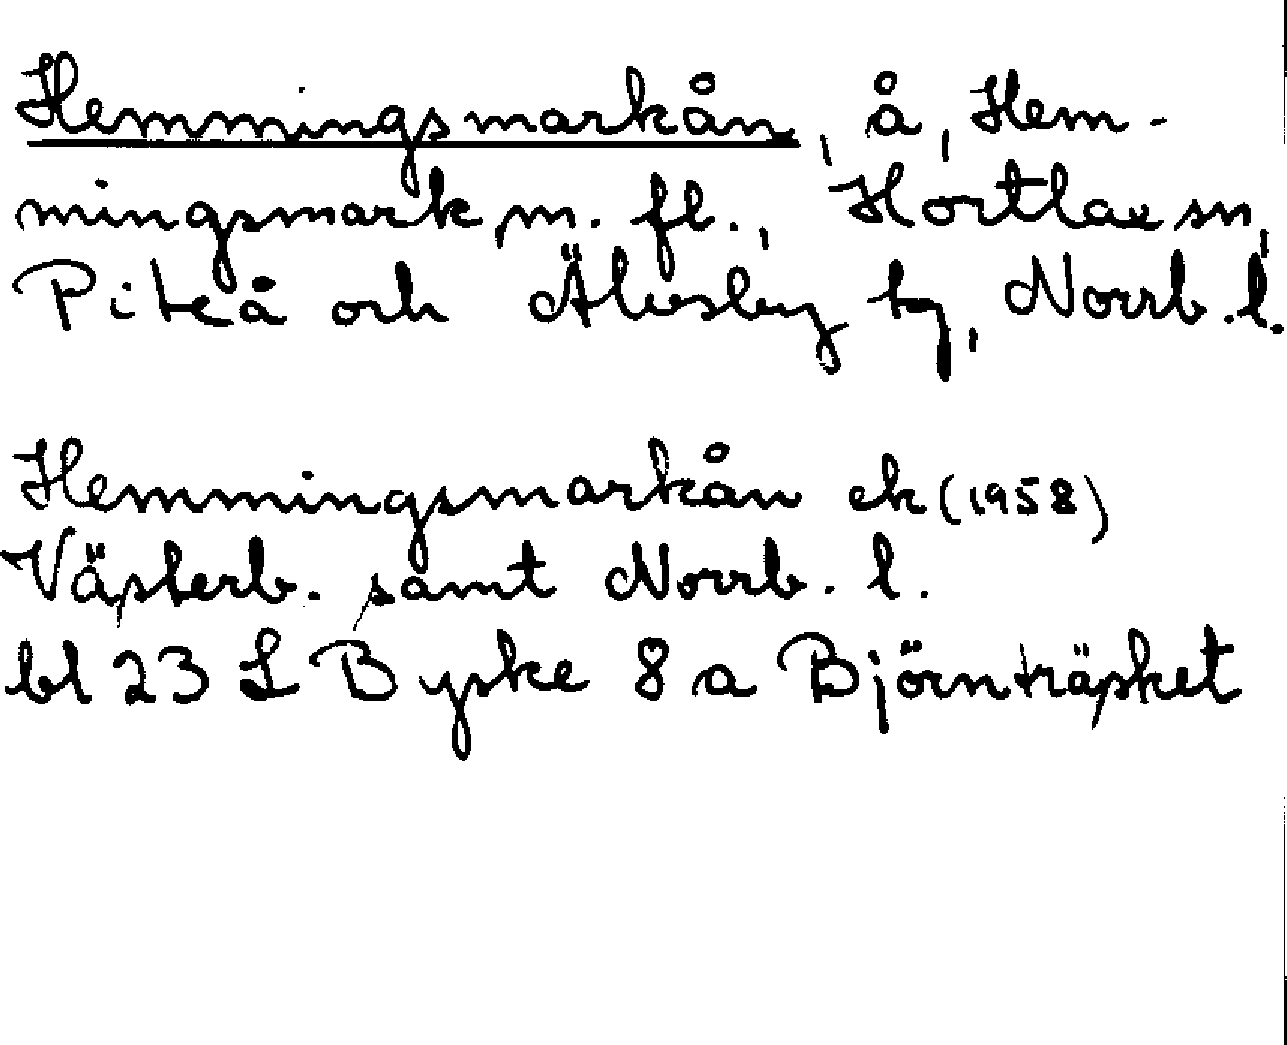 Hemmingsmarkån, å, Hem-
mingsmark, m. fl., Hortlax sn,
Piteå och Älvsby tg, Norrb. l.
Hemmingsmarkån ek (1958)
Västerb. samt Norrb. l.
bl 23 L Byske 8 a Björnträsket